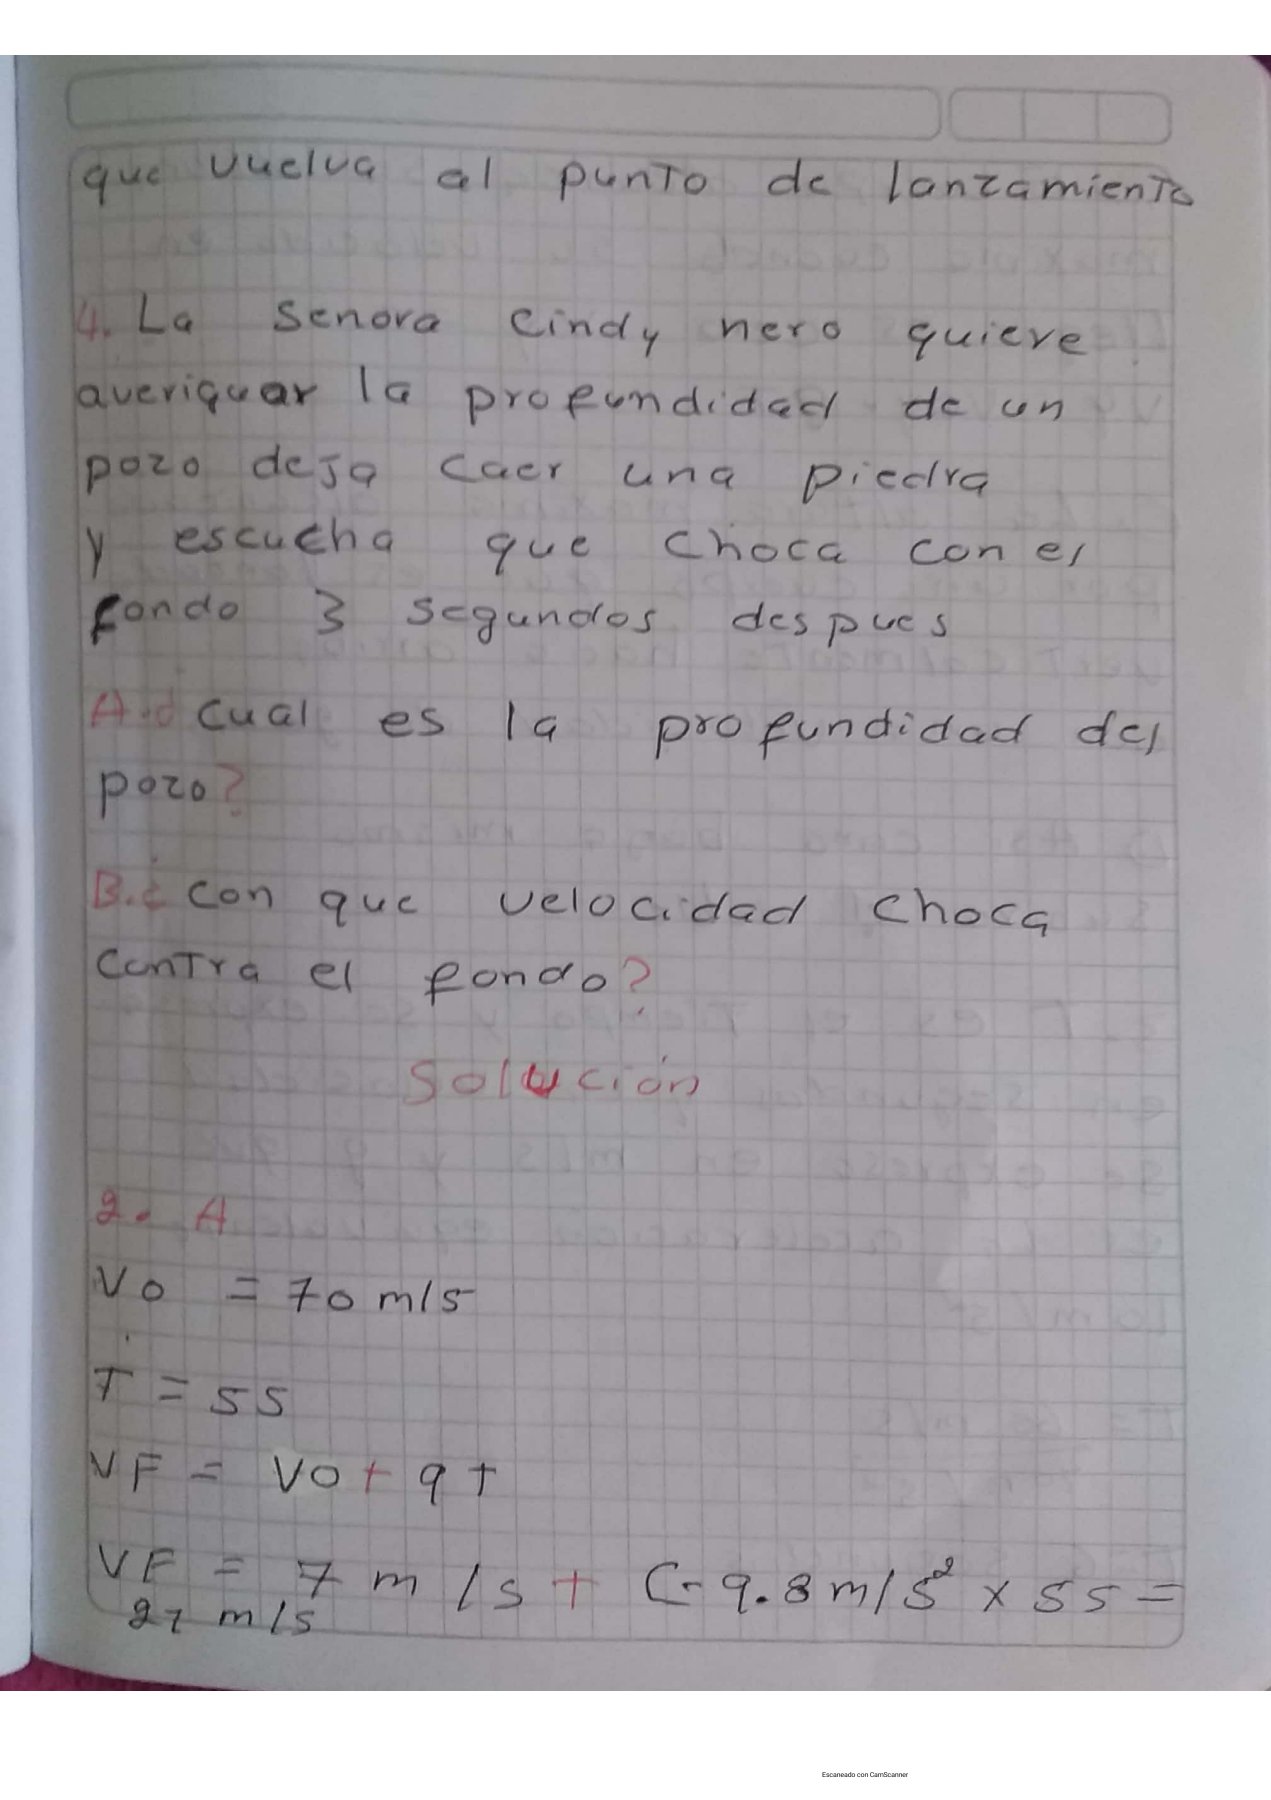 que vuelva al punto de lanzamiento
4. La senora cindy nero quiere
averiguar la profundidad de un
pozo deja caer una piedra
y escucha que choca con el
fondo 3 segundos despues
A.¿ cual es la profundidad del
pozo?
B.¿ con que velocidad choca
contra el fondo?
Solución
2. A
Vo = 70 m/s
T = 5s
VF = Vo + gt
VF = 7 m/s + (-9.8 m/s² x 5s =
21 m/s
Escaneado con CamScanner